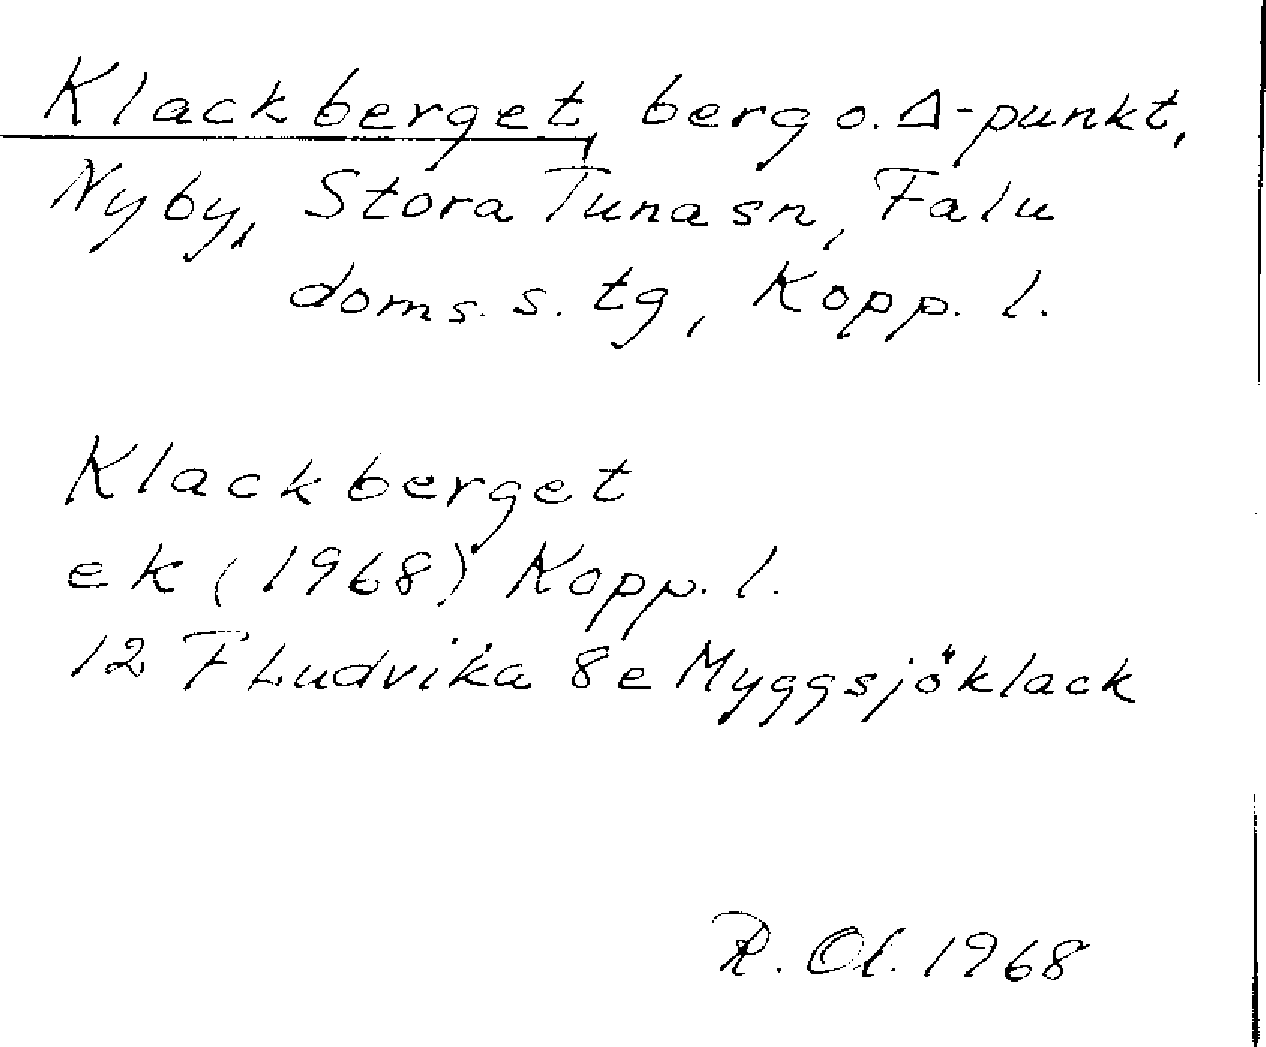 Klackberget, berg o. Δ-punkt,
Nyby, Stora Tuna sn, Falu
doms. s. tg, Kopp. l.
Klackberget
ek (1968) Kopp. l.
12 F Ludvika 8e Myggsjöklack
R. Ol. 1968